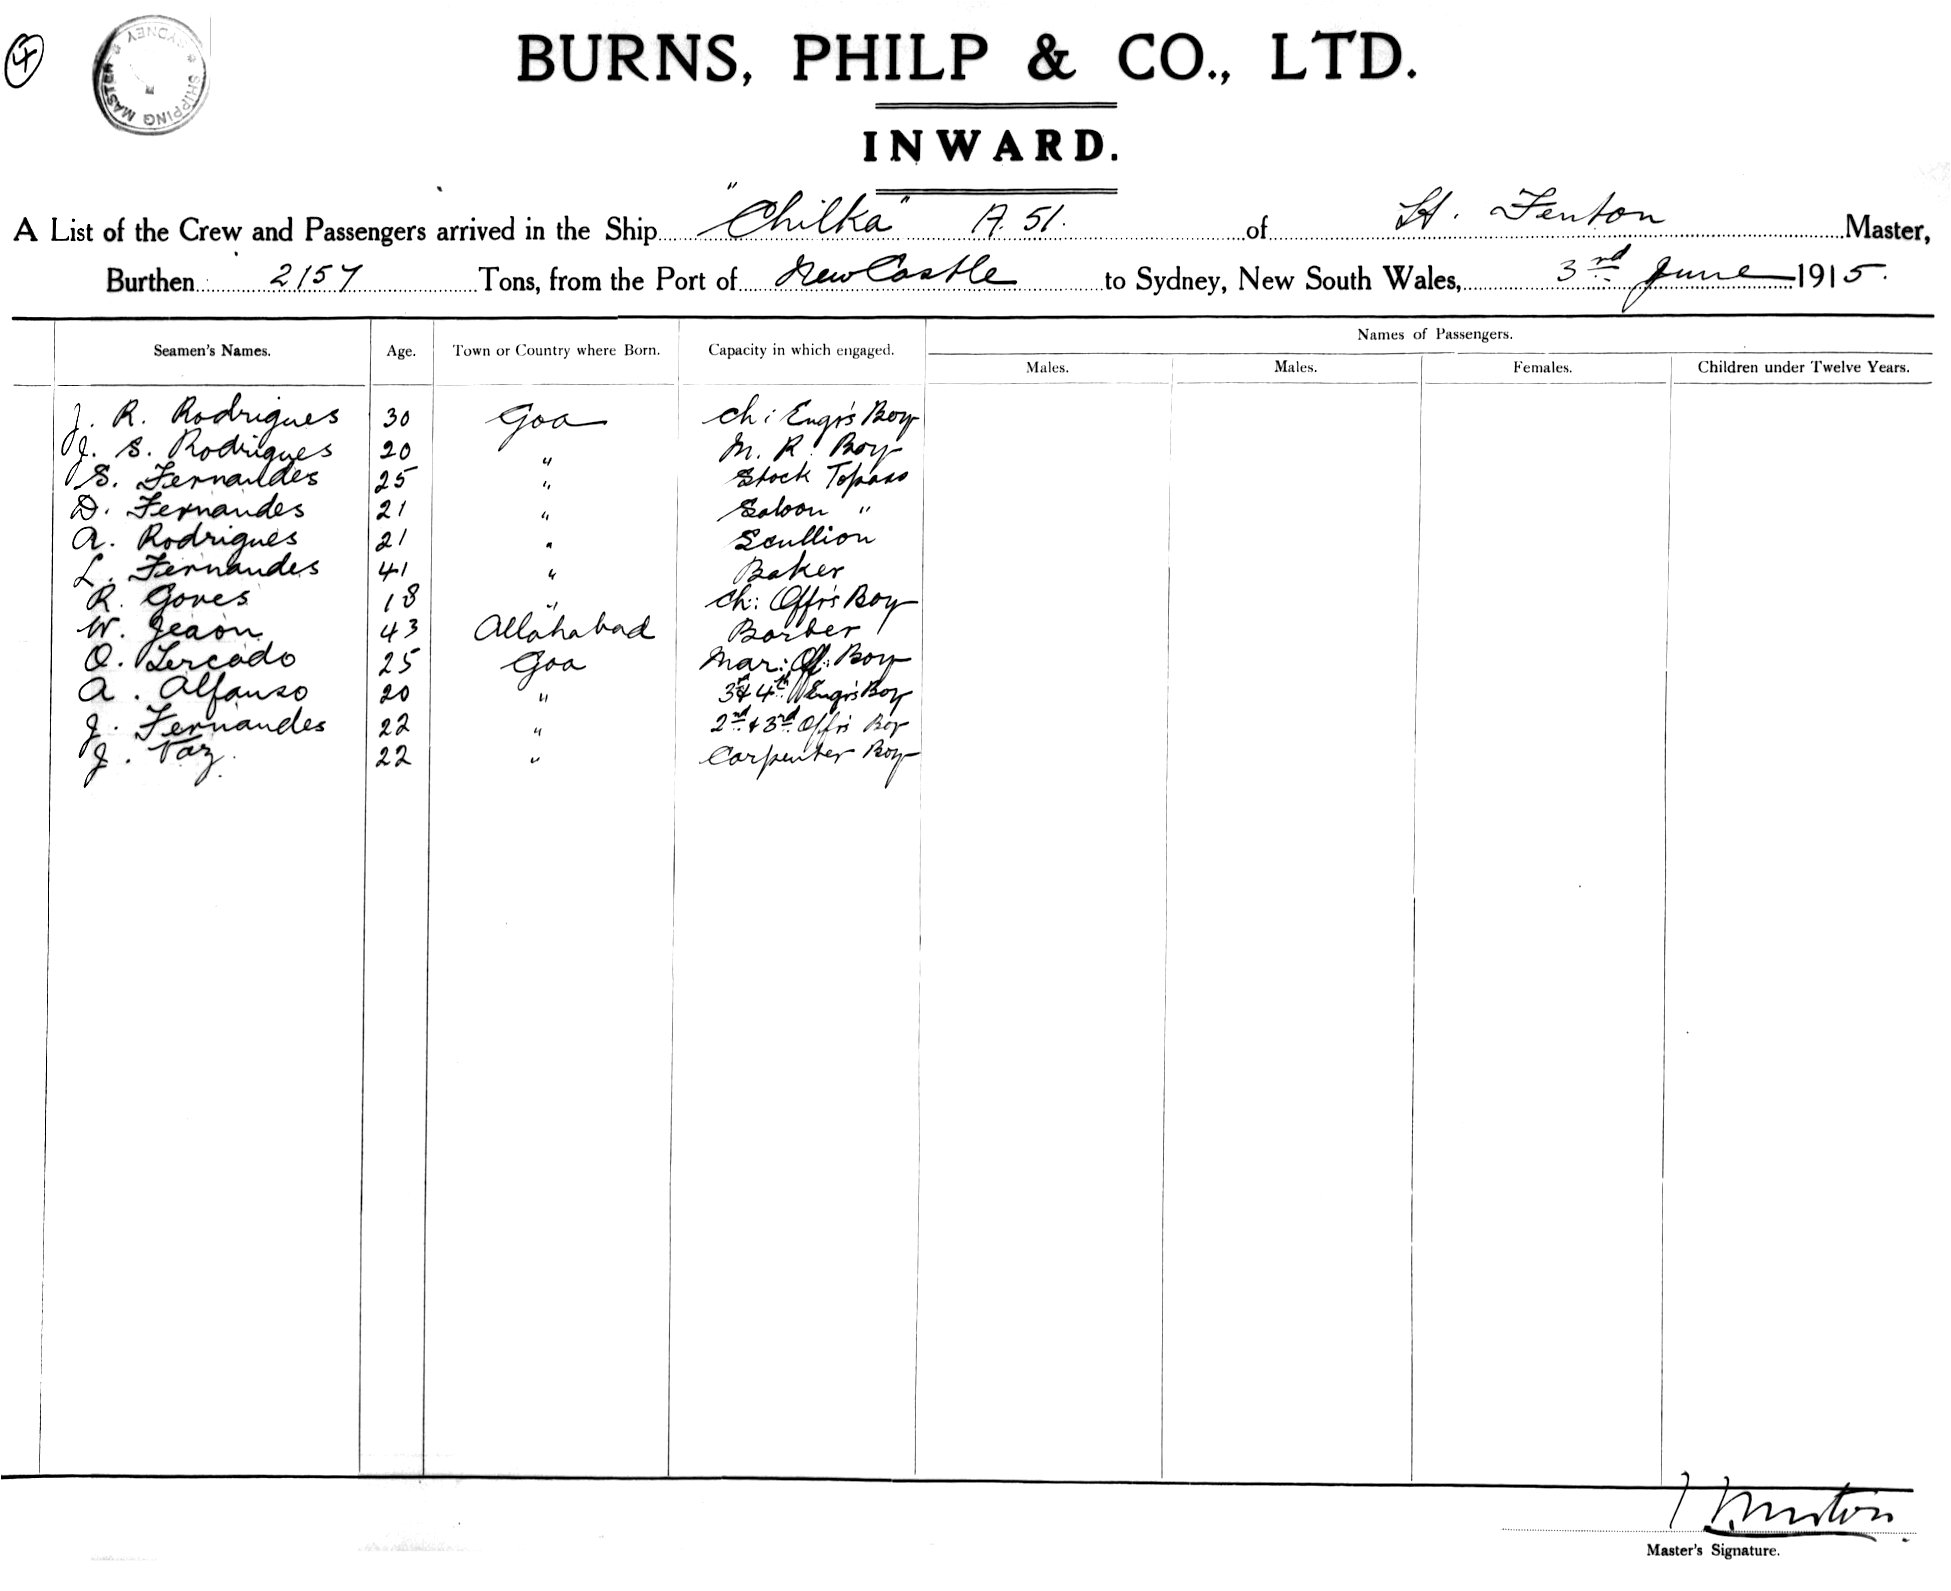 4
SHIPPING MASTER SYDNEY
BURNS, PHILP & CO., LTD.
INWARD.
A List of the Crew and Passengers arrived in the Ship "Chilka" A. 51. of H. Fenton Master,
Burthen 2157 Tons, from the Port of New Castle to Sydney, New South Wales, 3rd June 1915.
Names of Passengers.
Seamen's Names. Age. Town or Country where Born. Capacity in which engaged. Males. Males. Females. Children under Twelve Years.
J. R. Rodrigues 30 Goa Ch: Engr's Boy
J. S. Rodrigues 20 " M. R. Boy
S. Fernandes 25 " Stock Topass
D. Fernandes 21 " Saloon "
A. Rodrigues 21 " Scullion
L. Fernandes 41 " Baker
R. Goves 18 " Ch: Offr's Boy
W. Jeaon 43 Allahabad Barber
O. 25 Goa Mar: Off: Boy
A. Alfanso 20 " 3rd & 4th Engr's Boy
J. Fernandes 22 " 2nd & 3rd Offr's Boy
J. Vaz. 22 " Carpenter Boy
Master's Signature.